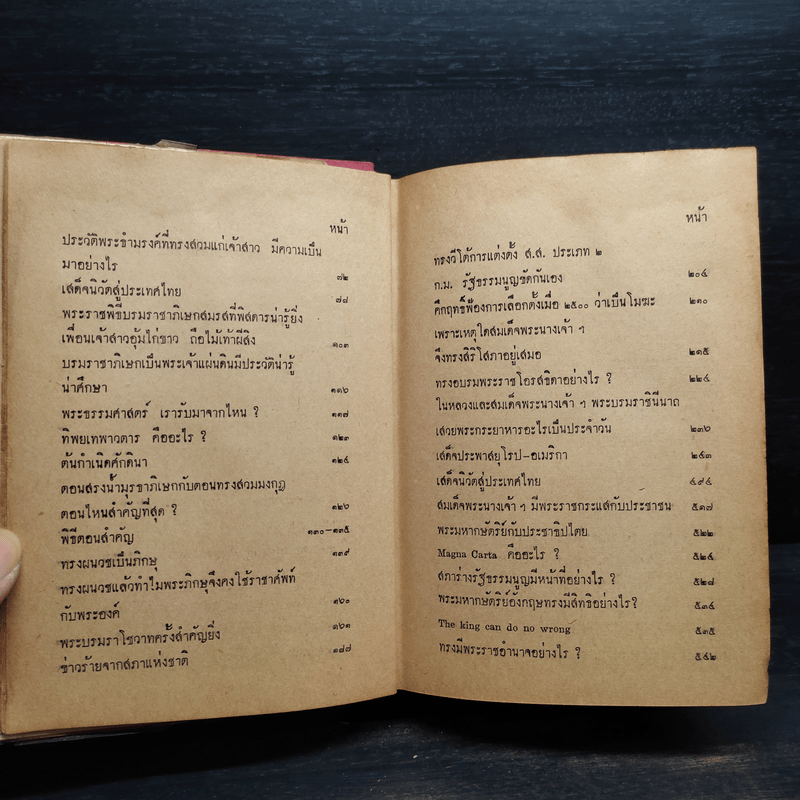 หน้า
ประวัติพระธำมรงค์ที่ทรงสวมแก่เจ้าสาว มีความเป็น
มาอย่างไร ๗๒
เสด็จนิวัตสู่ประเทศไทย ๗๘
พระราชพิธีบรมราชาภิเษกสมรสที่พิสดารน่ารู้ยิ่ง
เพื่อนเจ้าสาวอุ้มไก่ขาว ถือไม้เท้าผีสิง ๑๐๓
บรมราชาภิเษกเป็นพระเจ้าแผ่นดินมีประวัติน่ารู้
น่าศึกษา ๑๑๖
พระธรรมศาสตร์ เรารับมาจากไหน ? ๑๑๗
ทิพยเทพาวตาร คืออะไร ? ๑๒๓
ต้นกำเนิดศักดินา ๑๒๔
ตอนสรงน้ำมุรธาภิเษกกับตอนทรงสวมมงกุฎ
ตอนไหนสำคัญที่สุด ? ๑๒๖
พิธีตอนสำคัญ ๑๓๐-๑๓๕
ทรงผนวชเป็นภิกษุ ๑๓๙
ทรงผนวชแล้วทำไมพระภิกษุจึงคงใช้ราชาศัพท์
กับพระองค์ ๑๖๐
พระบรมราโชวาทครั้งสำคัญยิ่ง ๑๖๑
ข่าวร้ายจากสภาแห่งชาติ ๑๘๗
หน้า
ทรงวีโต้การแต่งตั้ง ส.ส. ประเภท ๒
ก.ม. รัฐธรรมนูญขัดกันเอง ๒๐๔
คึกฤทธิ์ฟ้องการเลือกตั้งเมื่อ ๒๕๐๐ ว่าเป็นโมฆะ ๒๑๐
เพราะเหตุใดสมเด็จพระนางเจ้า ฯ
จึงทรงสิริโสภาอยู่เสมอ ๒๑๕
ทรงอบรมพระราชโอรสธิดาอย่างไร ? ๒๒๔
ในหลวงและสมเด็จพระนางเจ้า ฯ พระบรมราชินีนาถ
เสวยพระกระยาหารอะไรเป็นประจำวัน ๒๓๖
เสด็จประพาสยุโรป-อเมริกา ๒๔๓
เสด็จนิวัตสู่ประเทศไทย ๔๙๔
สมเด็จพระนางเจ้า ฯ มีพระราชกระแสกับประชาชน ๕๑๗
พระมหากษัตริย์กับประชาธิปไตย ๕๒๒
Magna Carta คืออะไร ? ๕๒๔
สภาร่างรัฐธรรมนูญมีหน้าที่อย่างไร ? ๕๒๗
พระมหากษัตริย์อังกฤษทรงมีสิทธิอย่างไร? ๕๓๔
The king can do no wrong ๕๓๕
ทรงมีพระราชอำนาจอย่างไร ? ๕๔๒